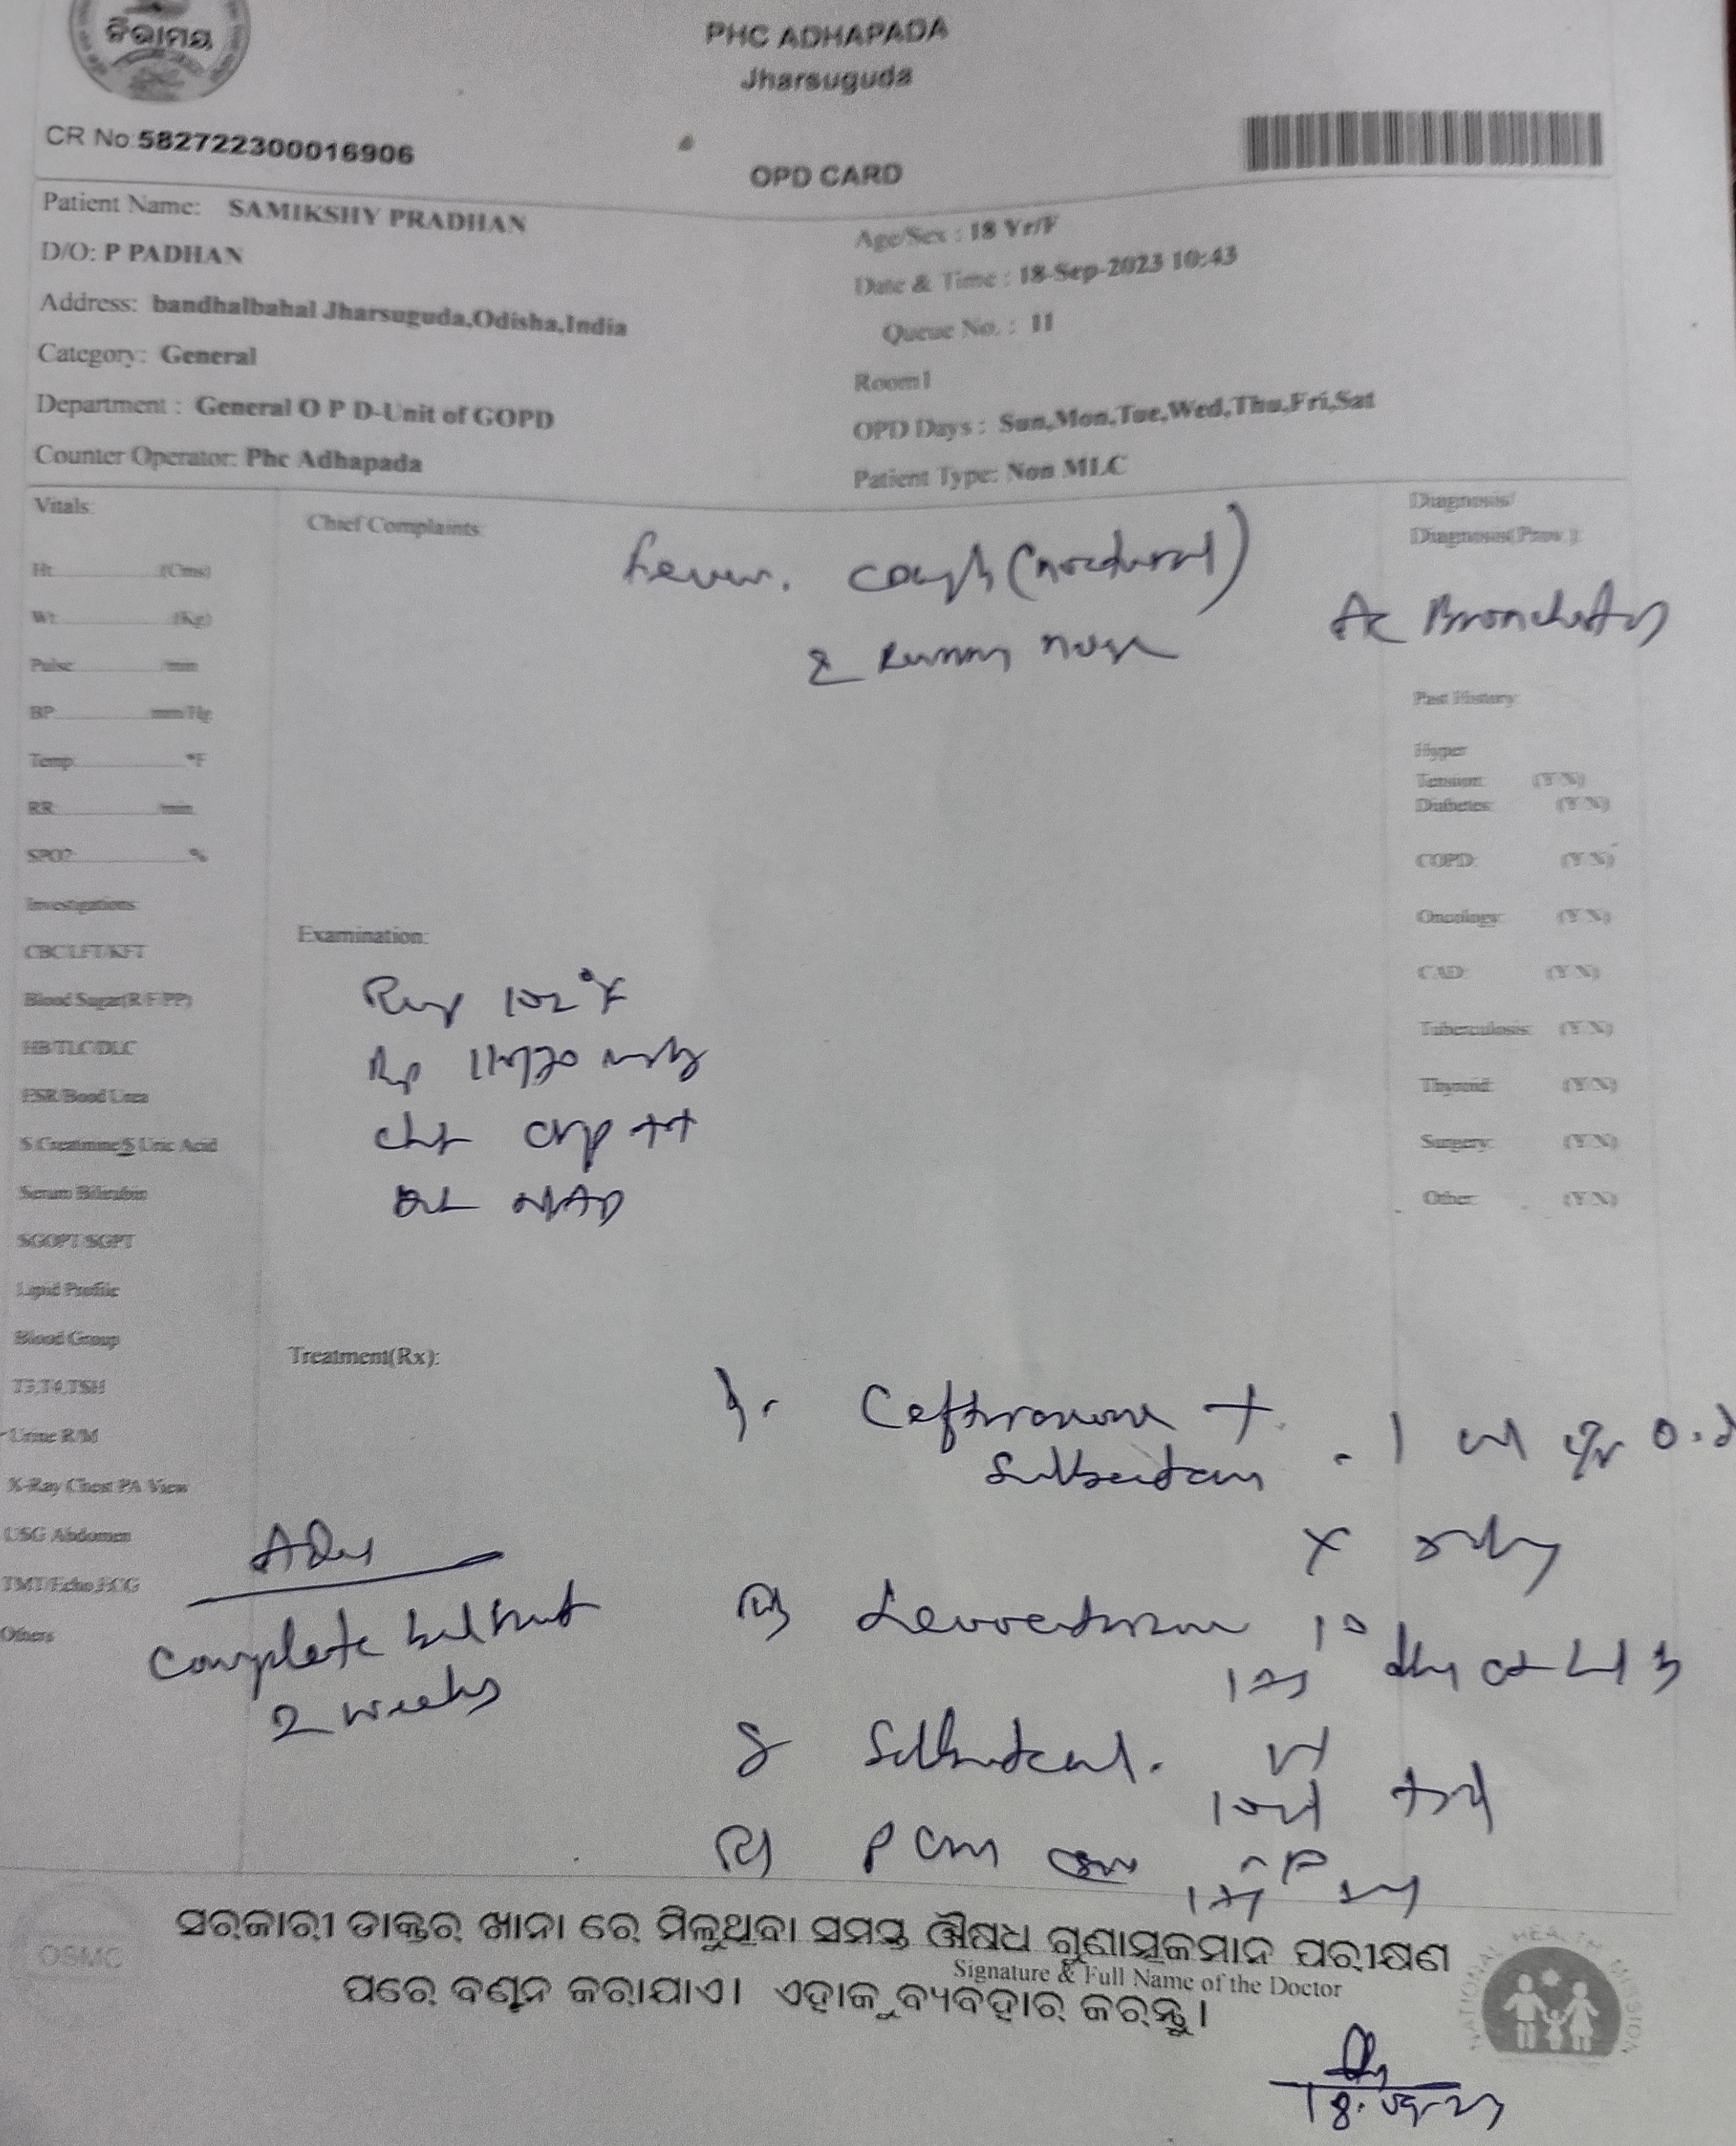 ନିରାମୟ
PHC ADHAPADA
Jharsuguda
CR No:582722300016906
OPD CARD
Patient Name: SAMIKSHY PRADHAN
Age/Sex : 18 Yr/F
D/O: P PADHAN
Date & Time : 18-Sep-2023 10:43
Address: bandhalbahal Jharsuguda,Odisha,India
Queue No. : 11
Category: General
Room1
Department : General O P D-Unit of GOPD
OPD Days : Sun,Mon,Tue,Wed,Thu,Fri,Sat
Counter Operator: Phc Adhapada
Patient Type: Non MLC
Vitals:
Chief Complaints:
Diagnosis/
Diagnosis(Prov.):
Fever. cough (nocturnal)
& Runny nose
Ac Bronchitis
Ht (Cms)
Wt (Kg)
Pulse /min
BP mm/Hg
Temp °F
RR /min
SPO2 %
Past History:
Hyper
Tension: (Y/N)
Diabetes: (Y/N)
COPD: (Y/N)
Oncology: (Y/N)
CAD: (Y/N)
Tuberculosis: (Y/N)
Thyroid: (Y/N)
Surgery: (Y/N)
Other: (Y/N)
Investigations
CBC/LFT/KFT
Blood Sugar(R/F/PP)
HB/TLC/DLC
ESR/Bood Urea
S Creatinine/S Uric Acid
Serum Bilirubin
SGOPT/SGPT
Lipid Profile
Blood Group
T3,T4,TSH
Urine R/M
X-Ray Chest PA View
USG Abdomen
TMT/Echo,ECG
Others
Examination:
102°F
110/70
chest crep ++
NAD
Treatment(Rx):
Ceftriaxone +
Sulbactam
1 O.d
x
10
PCM
Adv
complete bed rest
2 weeks
OSMC
ସରକାରୀ ଡାକ୍ତର ଖାନା ରେ ମିଳୁଥିବା ସମସ୍ତ ଔଷଧ ଗୁଣାତ୍ମକମାନ ପରୀକ୍ଷଣ
Signature & Full Name of the Doctor
ପରେ ବଣ୍ଟନ କରାଯାଏ। ଏହାକୁ ବ୍ୟବହାର କରନ୍ତୁ।
NATIONAL HEALTH MISSION
18.09.23